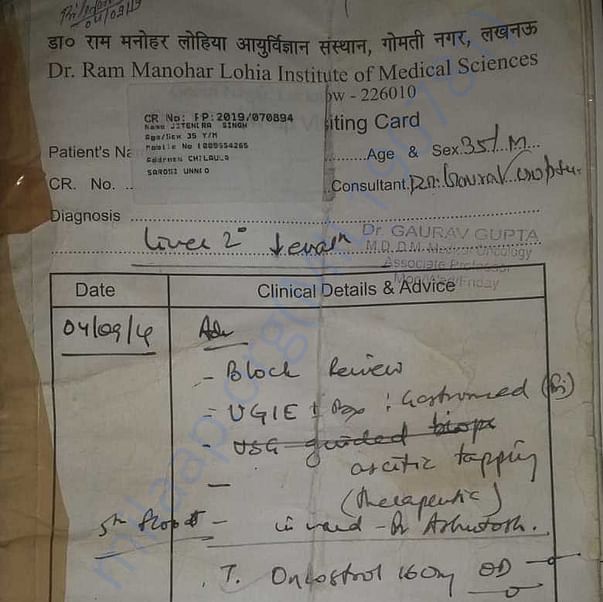 04/09/19
डा० राम मनोहर लोहिया आयुर्विज्ञान संस्थान, गोमती नगर, लखनऊ
Dr. Ram Manohar Lohia Institute of Medical Sciences
ow - 226010
CR No: PP:2019/070894
Name JITENDRA SINGH
Age/Sex 35 Y/M
Mobile No
Address CHILAULA
SAROSI UNNAO
iting Card
Patient's Na
Age & Sex 35/M
CR. No.
Consultant Dr. Gaurav Gupta
Diagnosis
Liver 2°
Dr GAURAV GUPTA
M.D, D.M. Medical Oncology
Associate Professor
Mon/Wed/Friday
Date
Clinical Details & Advice
04/09/19
Adv
- Block Review
- UGIE ± Bx : Gastromed
- USG guided biopsy
ascitic tapping
(therapeutic)
5th floor
in ward - Dr Ashutosh.
T. Oncostrol 160mg OD
milaap.org